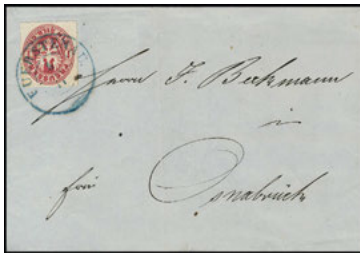 Herrn F. Beckmann
in
frei Osnabrück